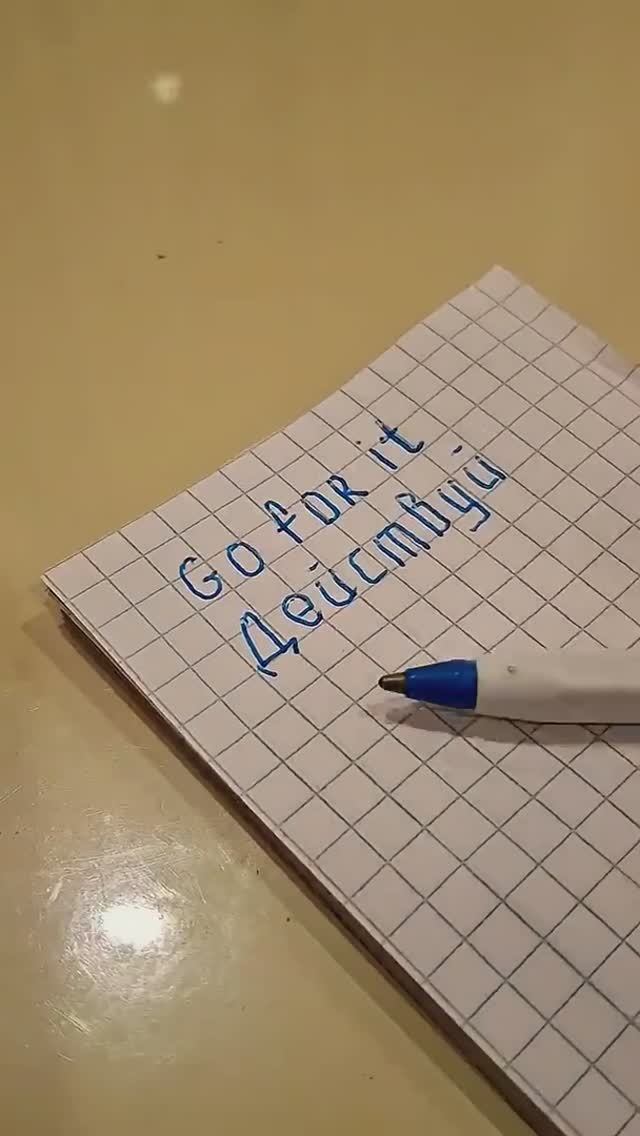 Go foR it
Действуй